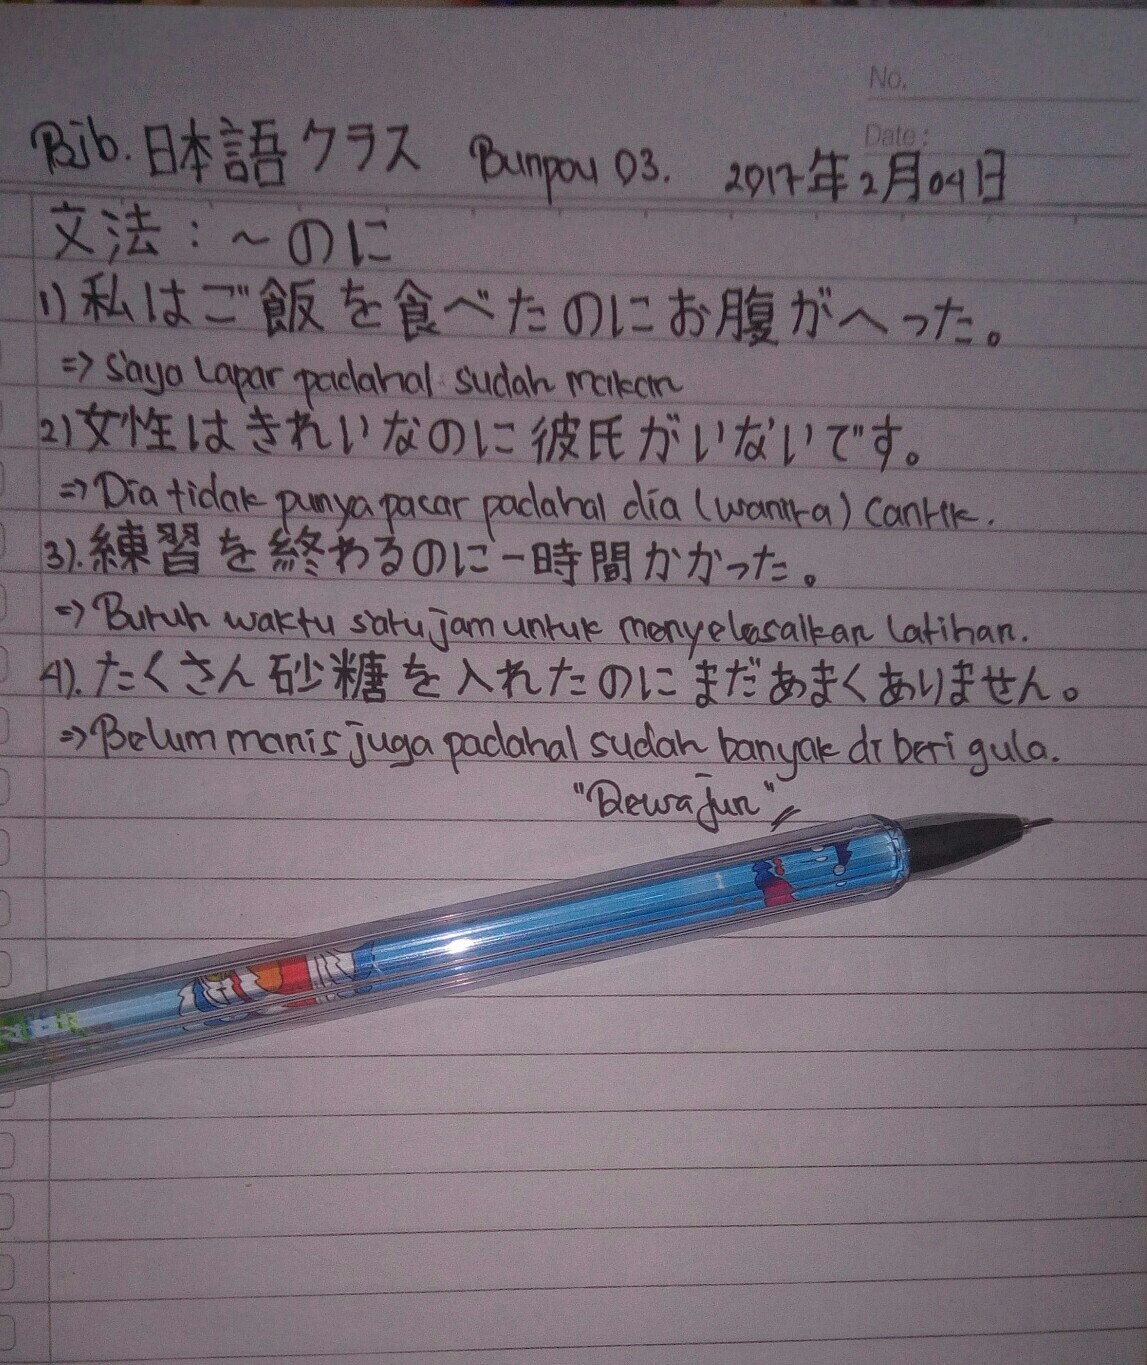 No.
Date:
Bjb. 日本語クラス Bunpou 03. 2017年2月04日
文法：～のに
1) 私はご飯を食べたのにお腹がへった。
=> Saya Lapar padahal sudah makan
2) 女性はきれいなのに彼氏がいないです。
=> Dia tidak punya pacar padahal dia (wanita) cantik.
3). 練習を終わるのに一時間かかった。
=> Butuh waktu satu jam untuk menyelesaikan latihan.
4). たくさん砂糖を入れたのにまだあまくありません。
=> Belum manis juga padahal sudah banyak di beri gula.
"Dewa jun"